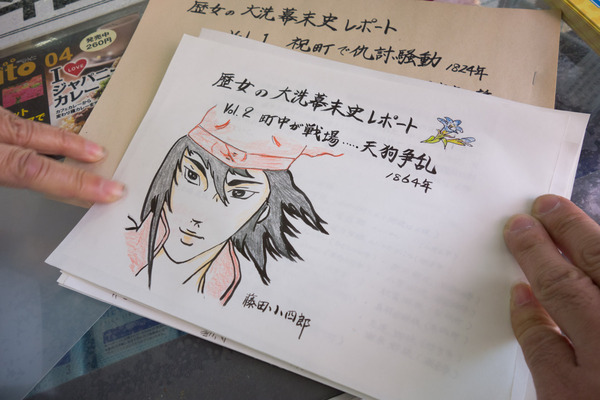 歴女の大洗幕末史レポート
Vol.1 祝町で仇討騒動 1824年
歴女の大洗幕末史レポート
Vol.2 町中が戦場‥‥天狗争乱
1864年
藤田小四郎
発売中
260円
ito 04
I LOVE
ジャパニーズ
カレー